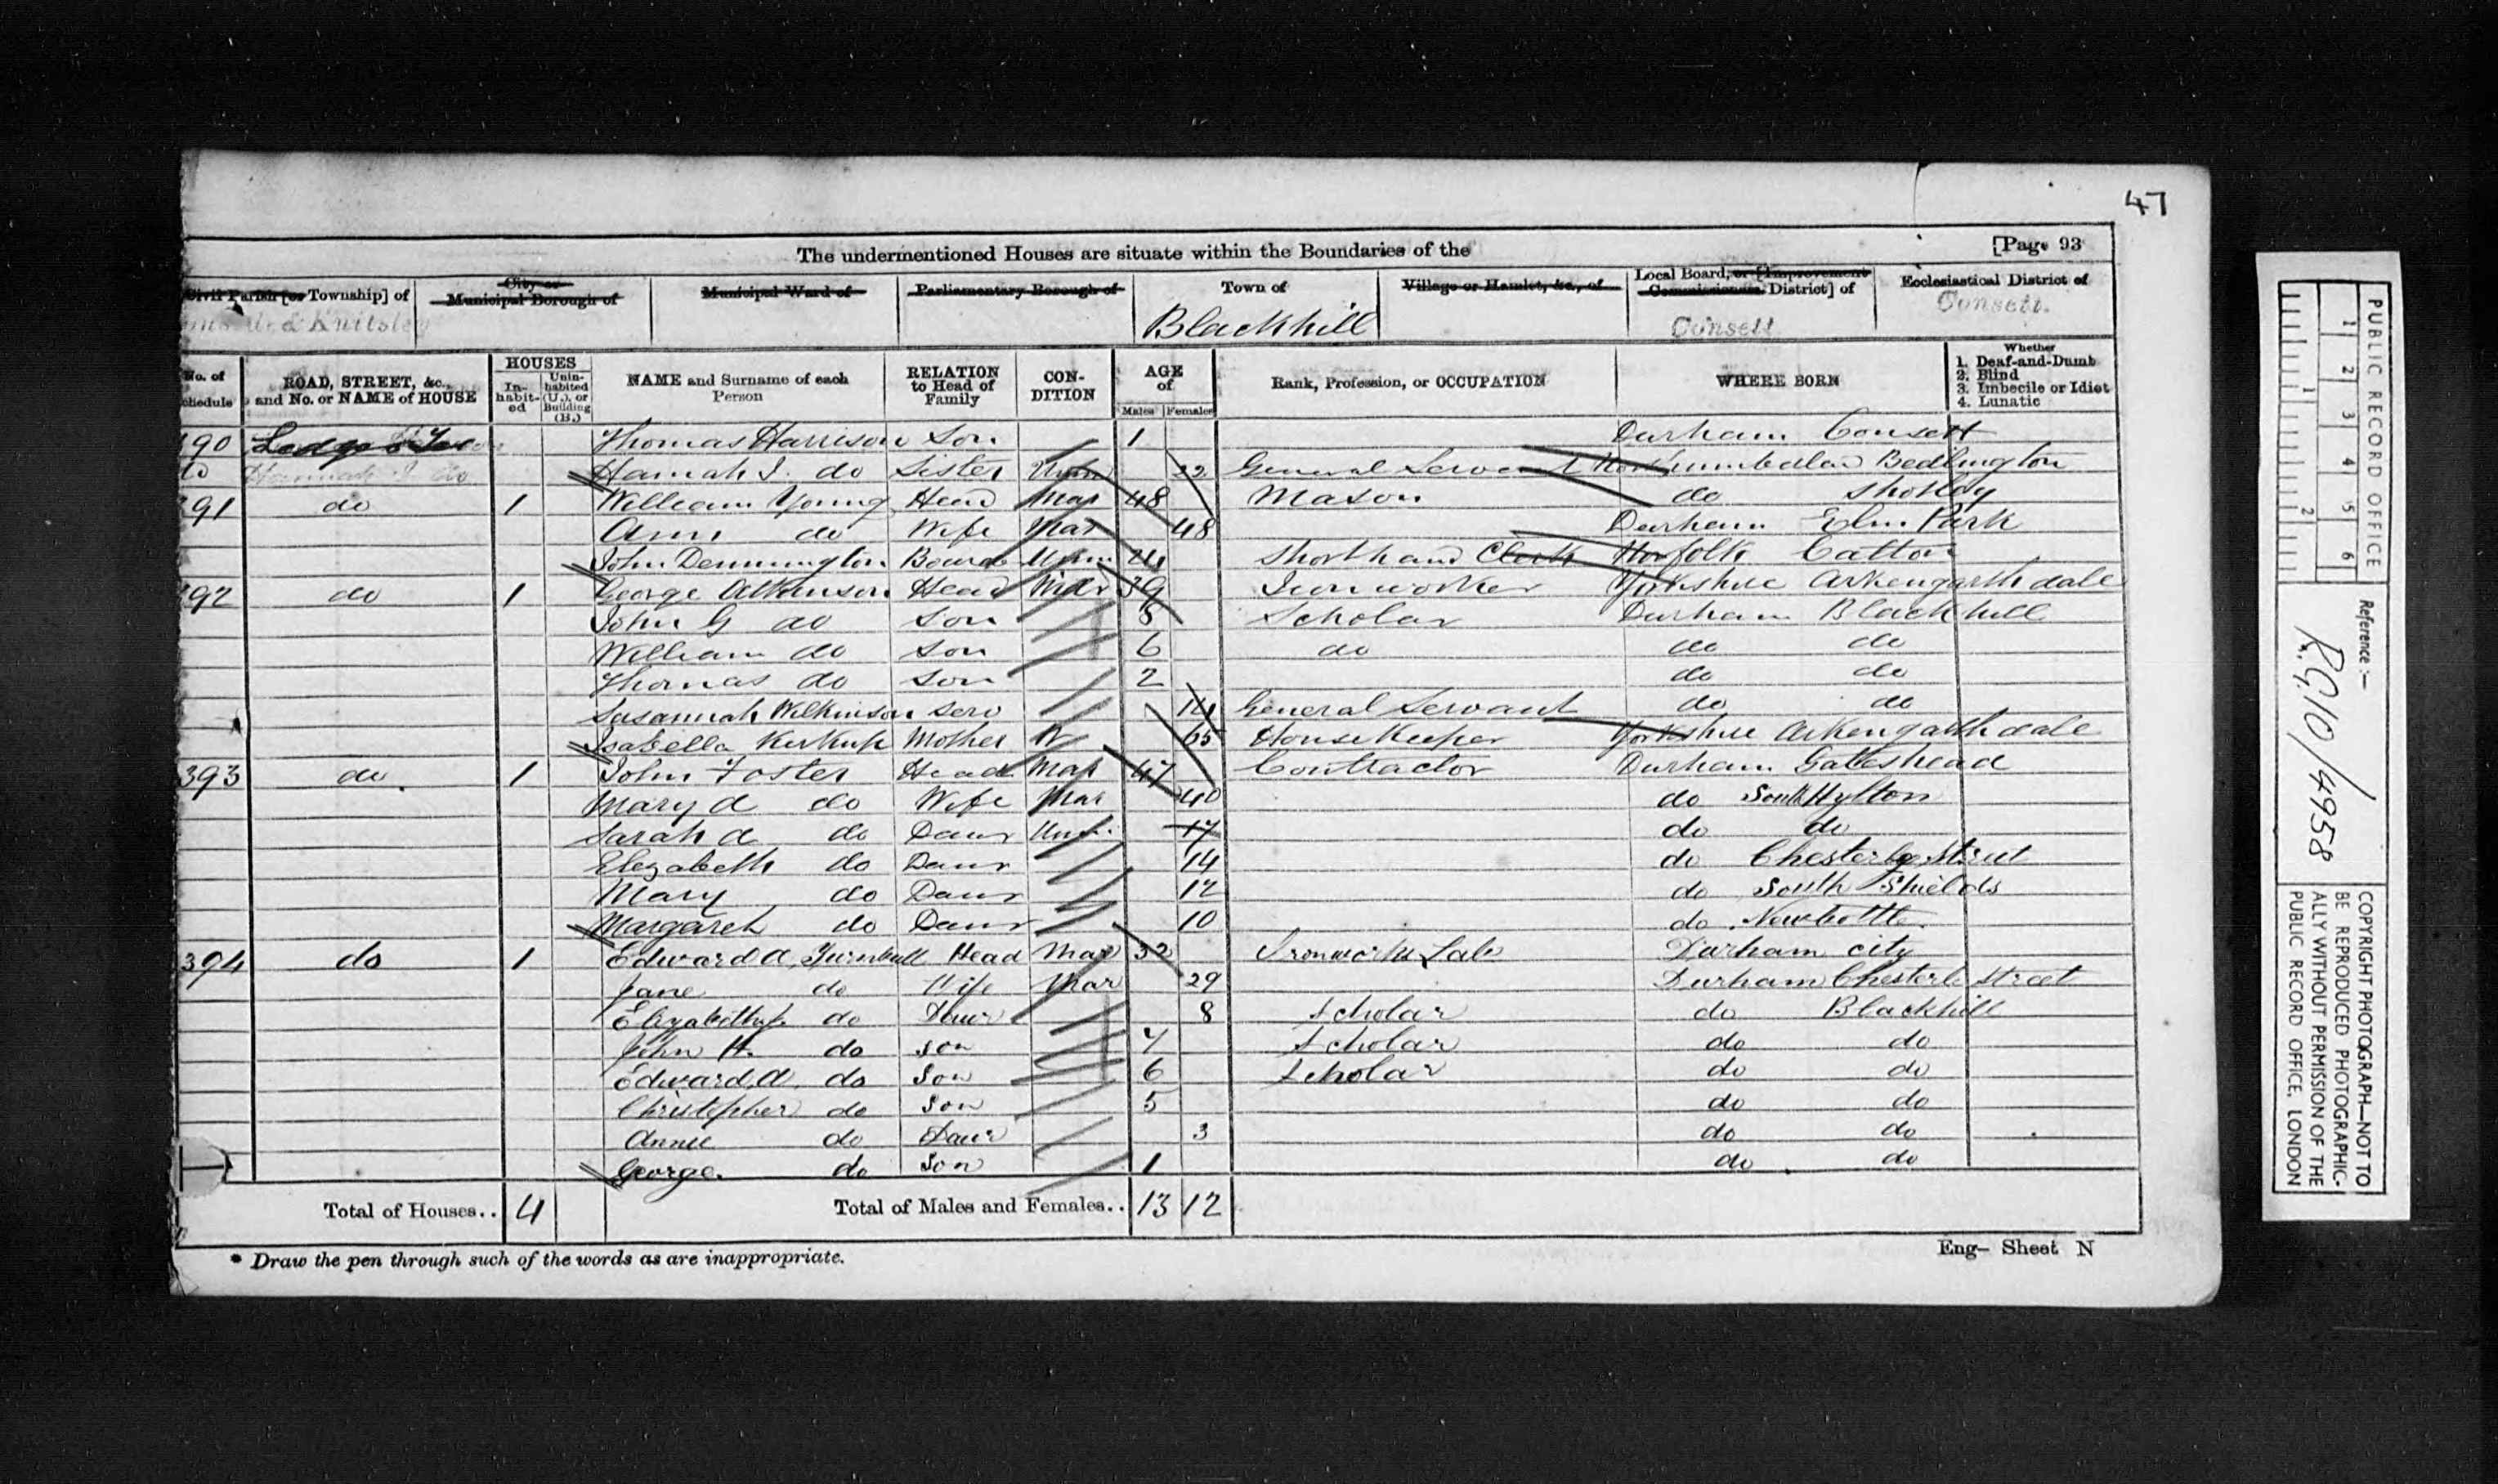 47
The undermentioned Houses are situate within the Boundaries of the [Page 93
Civil Parish [or Township] of City or Municipal Borough of Municipal Ward of Parliamentary Borough of Town of Village or Hamlet, &c., of Local Board, or [Improvement Commissioners District] of Ecclesiastical District of
& Knitsley Blackhill Consett Consett.
No. of Schedule ROAD, STREET, &c., and No. or NAME of HOUSE HOUSES In-habit-ed Unin-habited (U.), or Building (B.) NAME and Surname of each Person RELATION to Head of Family CON-DITION AGE of Males Females Rank, Profession, or OCCUPATION WHERE BORN Whether 1. Deaf-and-Dumb 2. Blind 3. Imbecile or Idiot 4. Lunatic
90 Thomas Harrison Son 1 Durham Consett
do Hannah J. do Sister Unm 22 General Servant Northumberland Bedlington
91 do 1 William Young Head Mar 48 Mason do Shotley
Ann do Wife Mar 48 Durham Elm Park
John Dennington Board Unm 24 Shorthand Clerk Norfolk Catton
92 do 1 George Atkinson Head Mar 39 Ironworker Yorkshire Arkengarthdale
John G do Son 8 Scholar Durham Blackhill
William do Son 6 do do do
Thomas do Son 2 do do
Susannah Wilkinson Serv 14 General Servant do do
Isabella Kirkup Mother W 65 House Keeper Yorkshire Arkengarthdale
393 do 1 John Foster Head Mar 47 Contractor Durham Gateshead
Mary A do Wife Mar 40 do South Hylton
Sarah A do Daur Unm. 17 do do
Elizabeth do Daur 14 do Chester le Street
Mary do Daur 12 do South Shields
Margaret do Daur 10 do Newbottle
394 do 1 Edward A. Turnbull Head Mar 32 Ironworks Lab Durham city
Jane do Wife Mar 29 Durham Chester le Street
Elizabeth J. do Daur 8 Scholar do Blackhill
John H. do Son 7 Scholar do do
Edward A. do Son 6 Scholar do do
Christopher do Son 5 do do
Annie do Daur 3 do do
George. do Son 1 do do
Total of Houses.. 4 Total of Males and Females.. 13 12
* Draw the pen through such of the words as are inappropriate.
Eng- Sheet N
PUBLIC RECORD OFFICE
1 2 3 4 5 6
1 2
Reference :-
R.G.10/4958
COPYRIGHT PHOTOGRAPH—NOT TO
BE REPRODUCED PHOTOGRAPHIC-
ALLY WITHOUT PERMISSION OF THE
PUBLIC RECORD OFFICE, LONDON